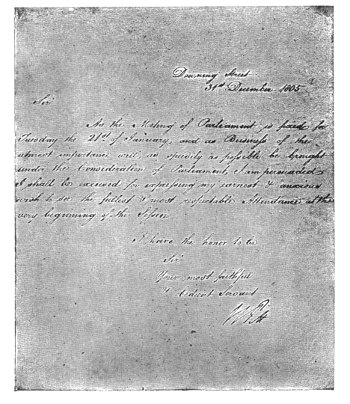 Downing Street
31st December 1805
Sir
As the Meeting of Parliament is fixed for
Tuesday the 21st of January, and as Business of the
utmost importance will as speedily as possible be brought
under the Consideration of Parliament, I am persuaded
I shall be excused for expressing my earnest & anxious
wish to see the fullest & most respectable Attendance at the
very beginning of the Session
I have the honor to be
Sir
Your most faithful
& Obedt Servant
W Pitt